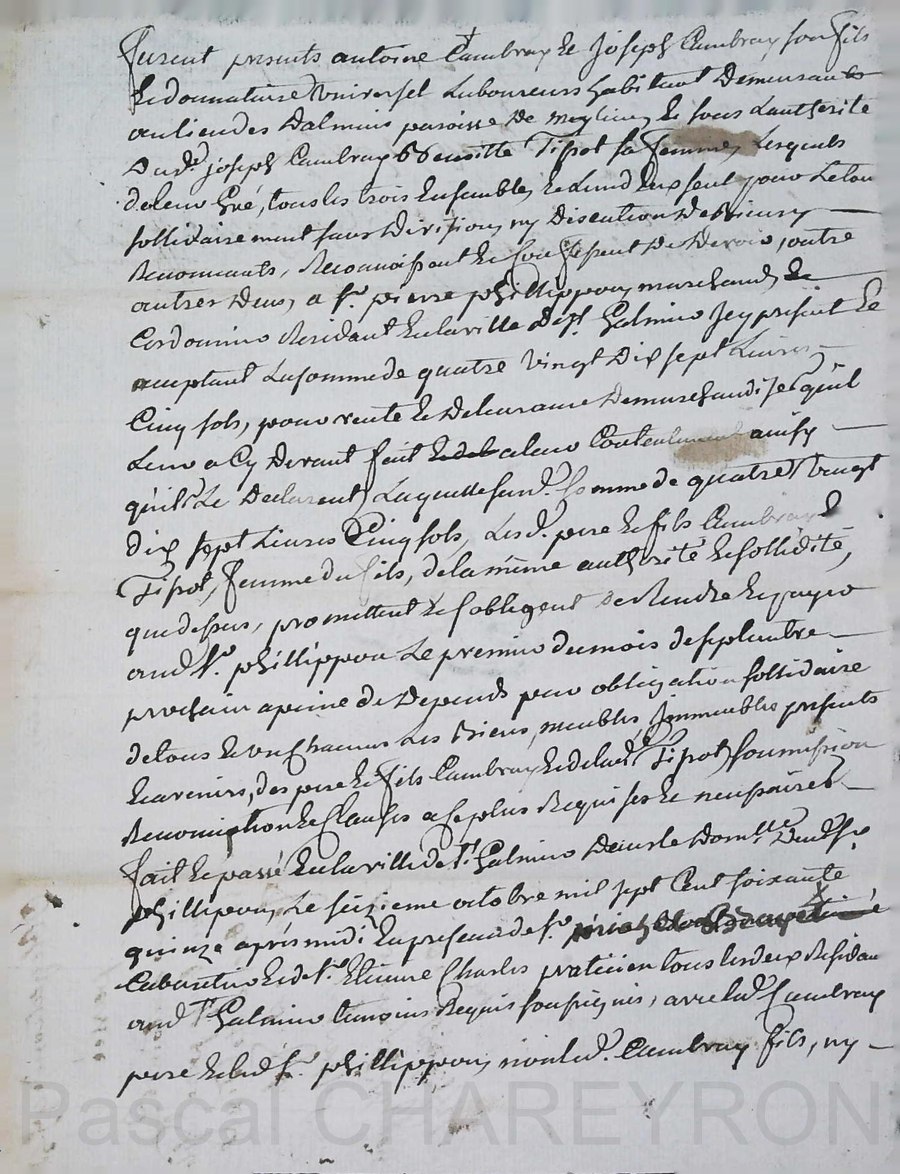 furent presents antoine Cambray & joseph Cambray son fils
& donnataire Universel Laboureurs habitant Demeurants
au lieu des Dalmais paroisse de & sous Lautherité
Dud. joseph Cambray Tipot sa femme, Lesquels
de leur Gré, tous les trois Ensemble, & Lund Eux seul pour Le tou
sollidairement sans Division, ny Discution De Biens y
Renonceants, Reconnoissent & Confessent De Devoir, outre
autres Deus, a Sr. pierre phillippon marchand &
Cordonnier Residant En la ville De St. Galmier Jcy present &
acceptant La somme de quatre Vingt Dix sept Livres
Cinq sols, pour vente & Delivrance De marchandises quil
Leur a Cy Devant fait a leur Contentement ainsy
quils Le Declarent, Laquelle susd. somme de quatre Vingt
dix sept Livres Cinq sols, Lesd. pere & fils Cambray &
Tipot, femme du fils, de la même autherité & sollidité,
que dessus, promettent & sobligent de Rendre & payer
aud Sr. phillippon Le premier du mois de septembre
prochain a peine de Depends pour obligation sollidaire
de tous & un Chacuns Les Biens, meubles, Jmmeubles presents
& avenirs, des pere & fils Cambray & de lad. Tipot, soumission
Renonciation & Clauses a Ce plus Requises &
fait & passé En la ville de St. Galmier Dans le Domlle Dud. Sr.
phillippon, Le seizieme octobre mil sept Cent soixante
quinze apres midi En presence de Sr.
Cabaretier & de Sr. Etienne Charles praticien tous les deux Residan
aud St. Galmier temoins Requis soussignés, avec led. Cambray
pere & led Sr. phillippon, non led. Cambray fils, ny
Pascal CHAREYRON